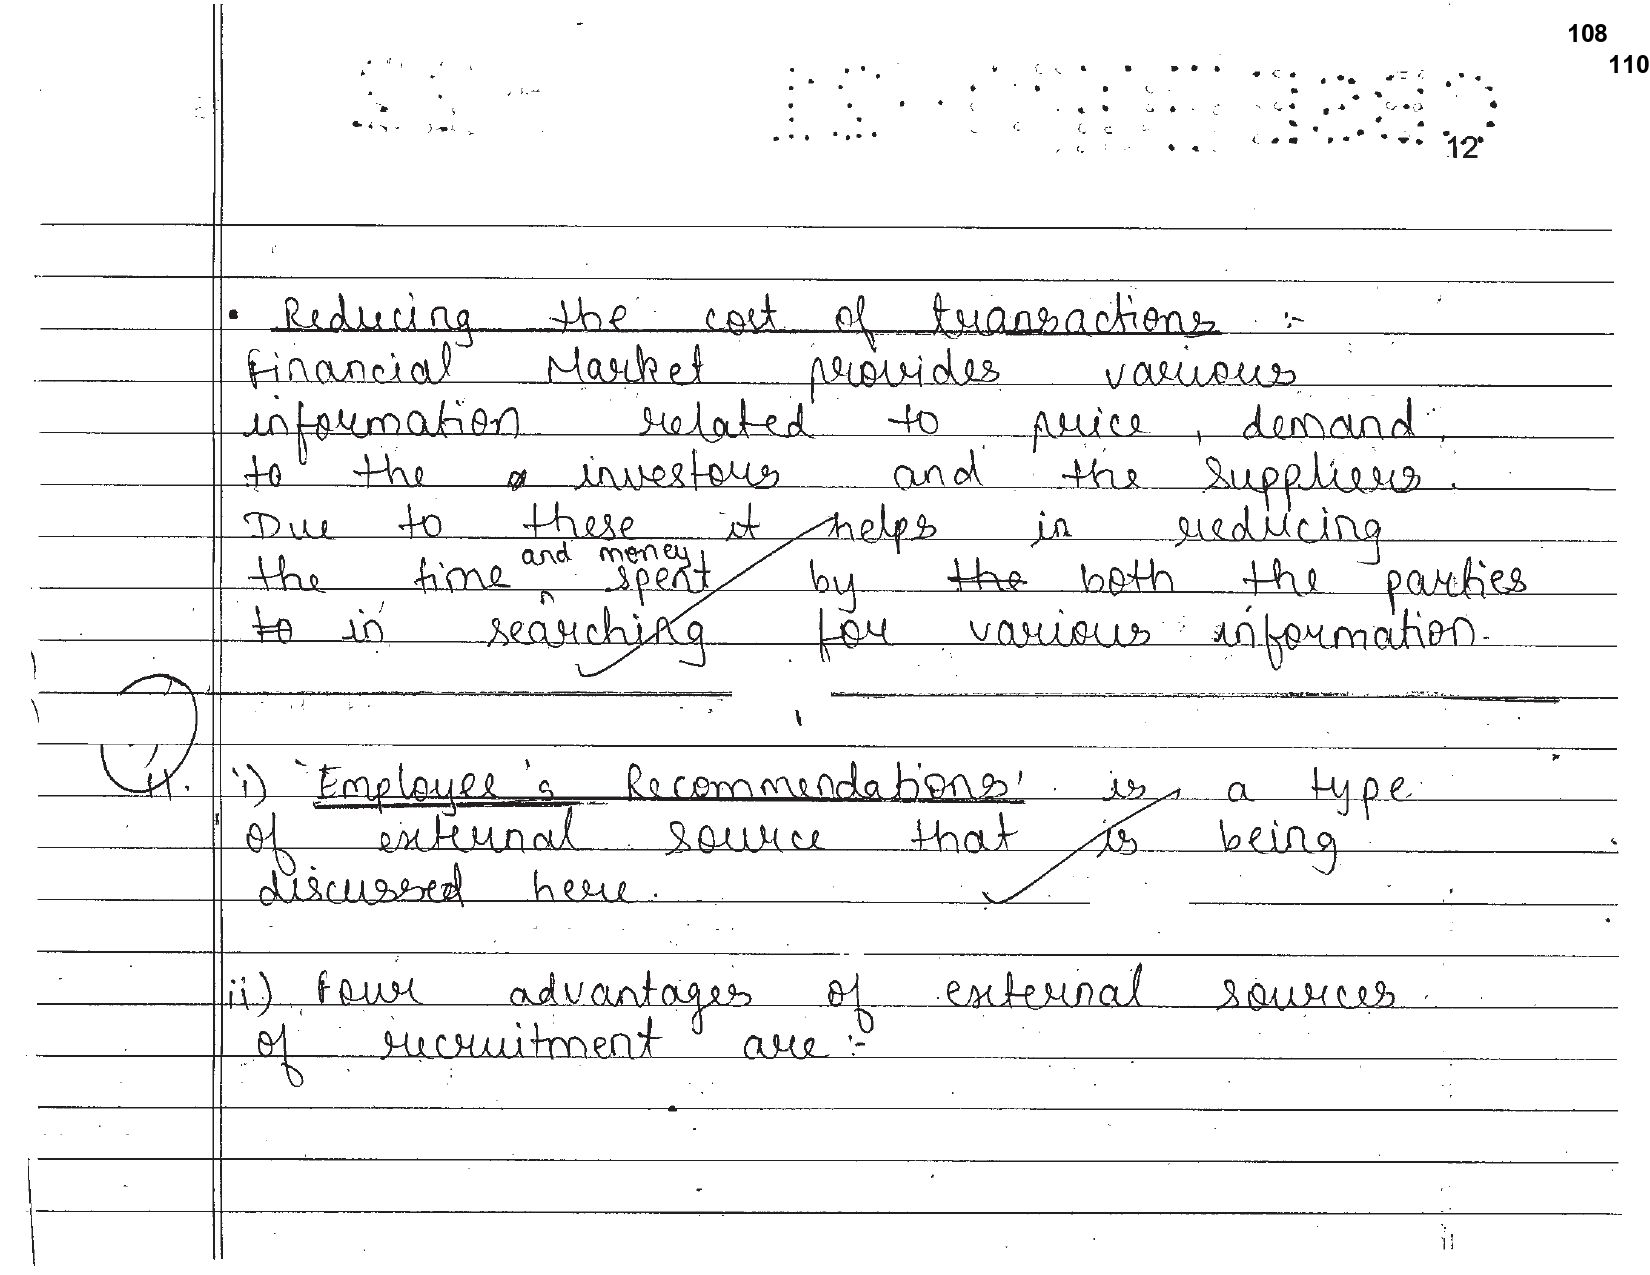 108
110
12
• Reducing the cost of transactions :-
Financial Market provides various
information related to price, demand,
to the investors and the suppliers.
Due to these it helps in reducing
the time and money spent by the both the parties
to in searching for various information.
11. i) 'Employee's Recommendations' is a type
of external source that is being
discussed here.
ii) Four advantages of external sources
of recruitment are :-